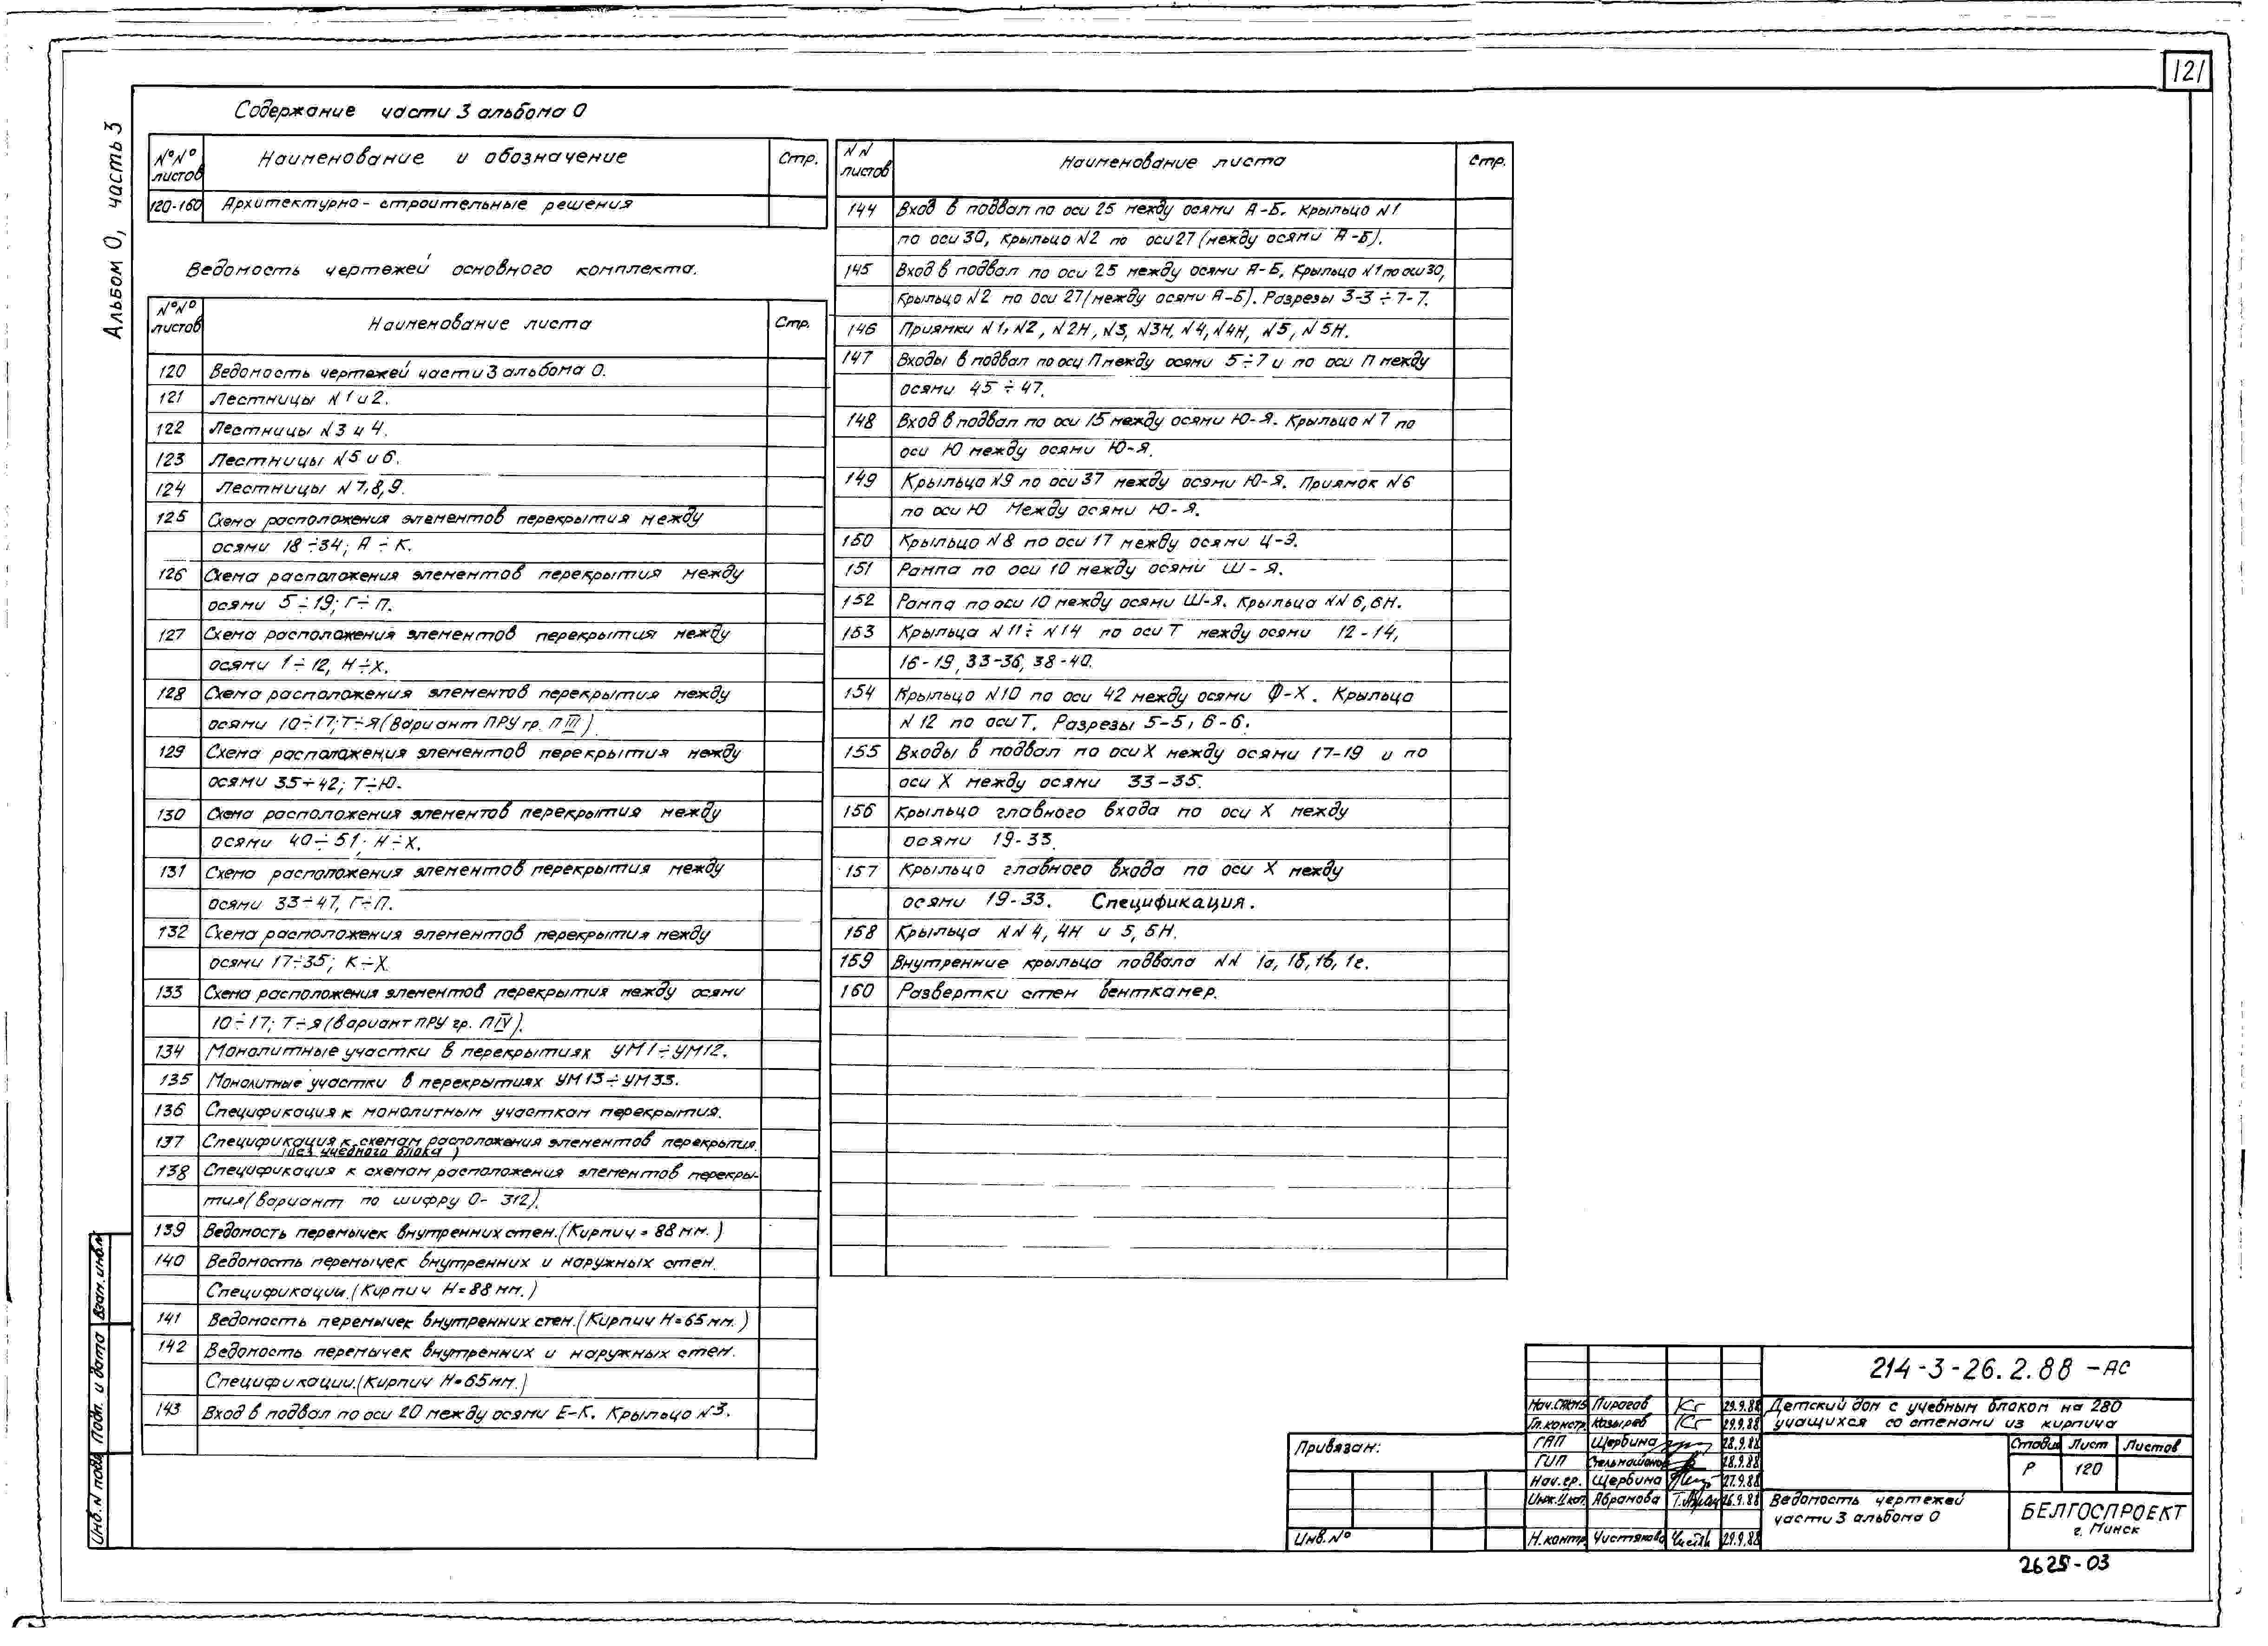 121
Альбом 0, часть 3
Содержание части 3 альбома 0
№№ листов Наименование и обозначение Стр.
120-160 Архитектурно-строительные решения
Ведомость чертежей основного комплекта.
№№ листов Наименование листа Стр.
120 Ведомость чертежей части 3 альбома 0.
121 Лестницы N1 и 2.
122 Лестницы N3 и 4.
123 Лестницы N5 и 6.
124 Лестницы N7,8,9.
125 Схема расположения элементов перекрытия между
осями 18÷34; А÷К.
126 Схема расположения элементов перекрытия между
осями 5÷19; Г÷П.
127 Схема расположения элементов перекрытия между
осями 1÷12, Н÷Х.
128 Схема расположения элементов перекрытия между
осями 10÷17; Т÷Я (Вариант ПРУ гр. П III)
129 Схема расположения элементов перекрытия между
осями 35÷42; Т÷Ю.
130 Схема расположения элементов перекрытия между
осями 40÷51; Н÷Х.
131 Схема расположения элементов перекрытия между
осями 33÷47, Г÷П.
132 Схема расположения элементов перекрытия между
осями 17÷35; К÷Х
133 Схема расположения элементов перекрытия между осями
10÷17; Т÷Я (вариант ПРУ гр. П IV).
134 Монолитные участки в перекрытиях УМ1÷УМ12.
135 Монолитные участки в перекрытиях УМ13÷УМ33.
136 Спецификация к монолитным участкам перекрытия.
137 Спецификация к схемам расположения элементов перекрытия
(без учебного блока)
138 Спецификация к схемам расположения элементов перекры-
тия (вариант по шифру 0-312).
139 Ведомость перемычек внутренних стен. (Кирпич = 88 мм.)
140 Ведомость перемычек внутренних и наружных стен.
Спецификации. (Кирпич Н=88 мм.)
141 Ведомость перемычек внутренних стен. (Кирпич Н=65 мм.)
142 Ведомость перемычек внутренних и наружных стен.
Спецификации. (Кирпич Н=65 мм.)
143 Вход в подвал по оси 20 между осями Е-К. Крыльцо N3.
NN листов Наименование листа Стр.
144 Вход в подвал по оси 25 между осями А-Б. Крыльцо N1
по оси 30, Крыльцо N2 по оси 27 (между осями А-Б).
145 Вход в подвал по оси 25 между осями А-Б, Крыльцо N1 по оси 30,
Крыльцо N2 по оси 27 (между осями А-Б). Разрезы 3-3÷7-7.
146 Приямки N1, N2, N2Н, N3, N3Н, N4, N4Н, N5, N5Н.
147 Входы в подвал по оси П между осями 5÷7 и по оси П между
осями 45÷47.
148 Вход в подвал по оси 15 между осями Ю-Я. Крыльцо N7 по
оси Ю между осями Ю-Я.
149 Крыльцо N9 по оси 37 между осями Ю-Я. Приямок N6
по оси Ю Между осями Ю-Я.
150 Крыльцо N8 по оси 17 между осями Ц-Э.
151 Рампа по оси 10 между осями Ш-Я.
152 Рампа по оси 10 между осями Ш-Я. Крыльца NN 6,6Н.
153 Крыльца N11÷N14 по оси Т между осями 12-14,
16-19, 33-36, 38-40.
154 Крыльцо N10 по оси 42 между осями Ф-Х. Крыльца
N12 по оси Т. Разрезы 5-5, 6-6.
155 Входы в подвал по оси Х между осями 17-19 и по
оси Х между осями 33-35.
156 Крыльцо главного входа по оси Х между
осями 19-33.
157 Крыльцо главного входа по оси Х между
осями 19-33. Спецификация.
158 Крыльца NN 4, 4Н и 5, 5Н.
159 Внутренние крыльца подвала NN 1а, 1б, 1в, 1г.
160 Развертки стен венткамер.
Взам. инв.N
Подп. и дата
Инв. N подл.
Привязан:
Инв. №
214-3-26.2.88-АС
Пирагов 29.9.88
Гл. констр. Козырев 29.9.88
ГАП Щербина 28.9.88
ГИП 28.9.88
Нач. гр. Щербина 27.9.88
Инж. II кат. Абрамова 26.9.88
Н. контр. Чистякова 29.9.88
Детский дом с учебным блоком на 280
учащихся со стенами из кирпича
Стадия Лист Листов
Р 120
Ведомость чертежей
части 3 альбома 0
БЕЛГОСПРОЕКТ
г. Минск
2625-03